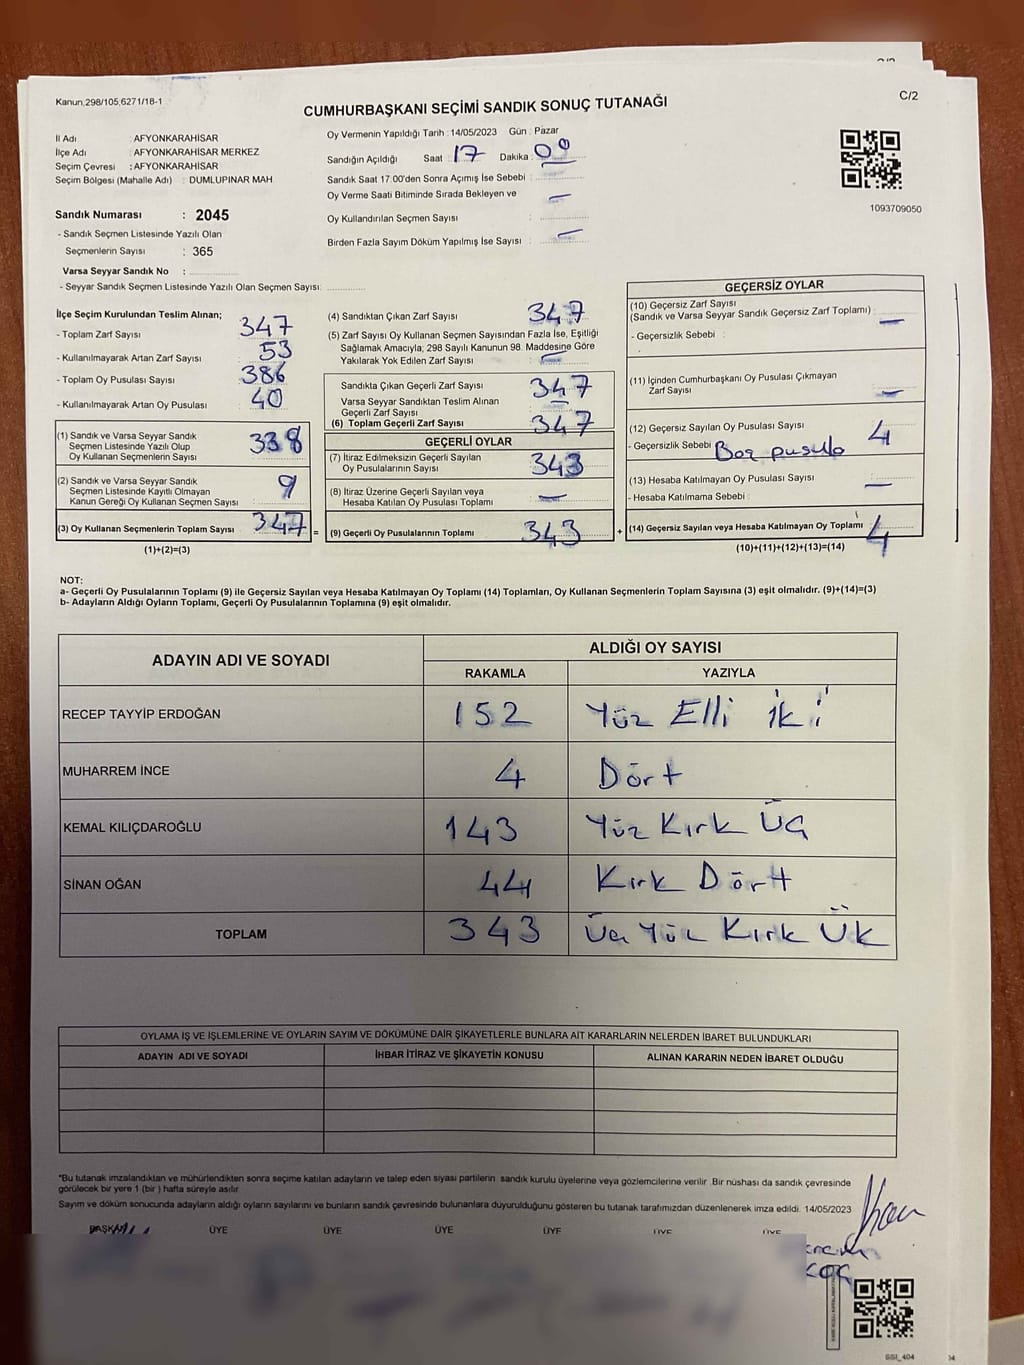 Kanun,298/105,6271/18-1
C/2
CUMHURBAŞKANI SEÇİMİ SANDIK SONUÇ TUTANAĞI
İl Adı : AFYONKARAHİSAR
İlçe Adı : AFYONKARAHİSAR MERKEZ
Seçim Çevresi : AFYONKARAHİSAR
Seçim Bölgesi (Mahalle Adı) : DUMLUPINAR MAH.
Oy Vermenin Yapıldığı Tarih : 14/05/2023 Gün : Pazar
Sandığın Açıldığı Saat 17 Dakika : 00
Sandık Saat 17.00'den Sonra Açımış İse Sebebi :
Oy Verme Saati Bitiminde Sırada Bekleyen ve –
Oy Kullandırılan Seçmen Sayısı :
Birden Fazla Sayım Döküm Yapılmış İse Sayısı : –
1093709050
Sandık Numarası : 2045
- Sandık Seçmen Listesinde Yazılı Olan
Seçmenlerin Sayısı : 365
Varsa Seyyar Sandık No :
- Seyyar Sandık Seçmen Listesinde Yazılı Olan Seçmen Sayısı:
İlçe Seçim Kurulundan Teslim Alınan;
- Toplam Zarf Sayısı 347
- Kullanılmayarak Artan Zarf Sayısı 53
- Toplam Oy Pusulası Sayısı 386
- Kullanılmayarak Artan Oy Pusulası 40
(1) Sandık ve Varsa Seyyar Sandık
Seçmen Listesinde Yazılı Olup
Oy Kullanan Seçmenlerin Sayısı 338
(2) Sandık ve Varsa Seyyar Sandık
Seçmen Listesinde Kayıtlı Olmayan
Kanun Gereği Oy Kullanan Seçmen Sayısı 9
(3) Oy Kullanan Seçmenlerin Toplam Sayısı 347 =
(1)+(2)=(3)
(4) Sandıktan Çıkan Zarf Sayısı 347
(5) Zarf Sayısı Oy Kullanan Seçmen Sayısından Fazla İse, Eşitliği
Sağlamak Amacıyla; 298 Sayılı Kanunun 98. Maddesine Göre
Yakılarak Yok Edilen Zarf Sayısı –
Sandıkta Çıkan Geçerli Zarf Sayısı 347
Varsa Seyyar Sandıktan Teslim Alınan
Geçerli Zarf Sayısı –
(6) Toplam Geçerli Zarf Sayısı 347
GEÇERLİ OYLAR
(7) İtiraz Edilmeksizin Geçerli Sayılan
Oy Pusulalarının Sayısı 343
(8) İtiraz Üzerine Geçerli Sayılan veya
Hesaba Katılan Oy Pusulası Toplamı –
(9) Geçerli Oy Pusulalarının Toplamı 343 +
GEÇERSİZ OYLAR
(10) Geçersiz Zarf Sayısı
(Sandık ve Varsa Seyyar Sandık Geçersiz Zarf Toplamı) : –
- Geçersizlik Sebebi :
(11) İçinden Cumhurbaşkanı Oy Pusulası Çıkmayan
Zarf Sayısı –
(12) Geçersiz Sayılan Oy Pusulası Sayısı 4
- Geçersizlik Sebebi Boş pusula
(13) Hesaba Katılmayan Oy Pusulası Sayısı –
- Hesaba Katılmama Sebebi :
(14) Geçersiz Sayılan veya Hesaba Katılmayan Oy Toplamı 4
(10)+(11)+(12)+(13)=(14)
NOT:
a- Geçerli Oy Pusulalarının Toplamı (9) ile Geçersiz Sayılan veya Hesaba Katılmayan Oy Toplamı (14) Toplamları, Oy Kullanan Seçmenlerin Toplam Sayısına (3) eşit olmalıdır. (9)+(14)=(3)
b- Adayların Aldığı Oyların Toplamı, Geçerli Oy Pusulalarının Toplamına (9) eşit olmalıdır.
ADAYIN ADI VE SOYADI
ALDIĞI OY SAYISI
RAKAMLA YAZIYLA
RECEP TAYYİP ERDOĞAN 152 Yüz Elli iki
MUHARREM İNCE 4 Dört
KEMAL KILIÇDAROĞLU 143 Yüz Kırk Üç
SİNAN OĞAN 44 Kırk Dört
TOPLAM 343 Üç Yüz Kırk
OYLAMA İŞ VE İŞLEMLERİNE VE OYLARIN SAYIM VE DÖKÜMÜNE DAİR ŞİKAYETLERLE BUNLARA AİT KARARLARIN NELERDEN İBARET BULUNDUKLARI
ADAYIN ADI VE SOYADI İHBAR İTİRAZ VE ŞİKAYETİN KONUSU ALINAN KARARIN NEDEN İBARET OLDUĞU
*Bu tutanak imzalandıktan ve mühürlendikten sonra seçime katılan adayların ve talep eden siyasi partilerin sandık kurulu üyelerine veya gözlemcilerine verilir .Bir nüshası da sandık çevresinde
görülecek bir yere 1 (bir ) hafta süreyle asılır
Sayım ve döküm sonucunda adayların aldığı oyların sayılarını ve bunların sandık çevresinde bulunanlara duyurulduğunu gösteren bu tutanak tarafımızdan düzenlenerek imza edildi. 14/05/2023
BAŞKAN ÜYE ÜYE ÜYE ÜYE ÜYE ÜYE
KOÇ
SSİ_404